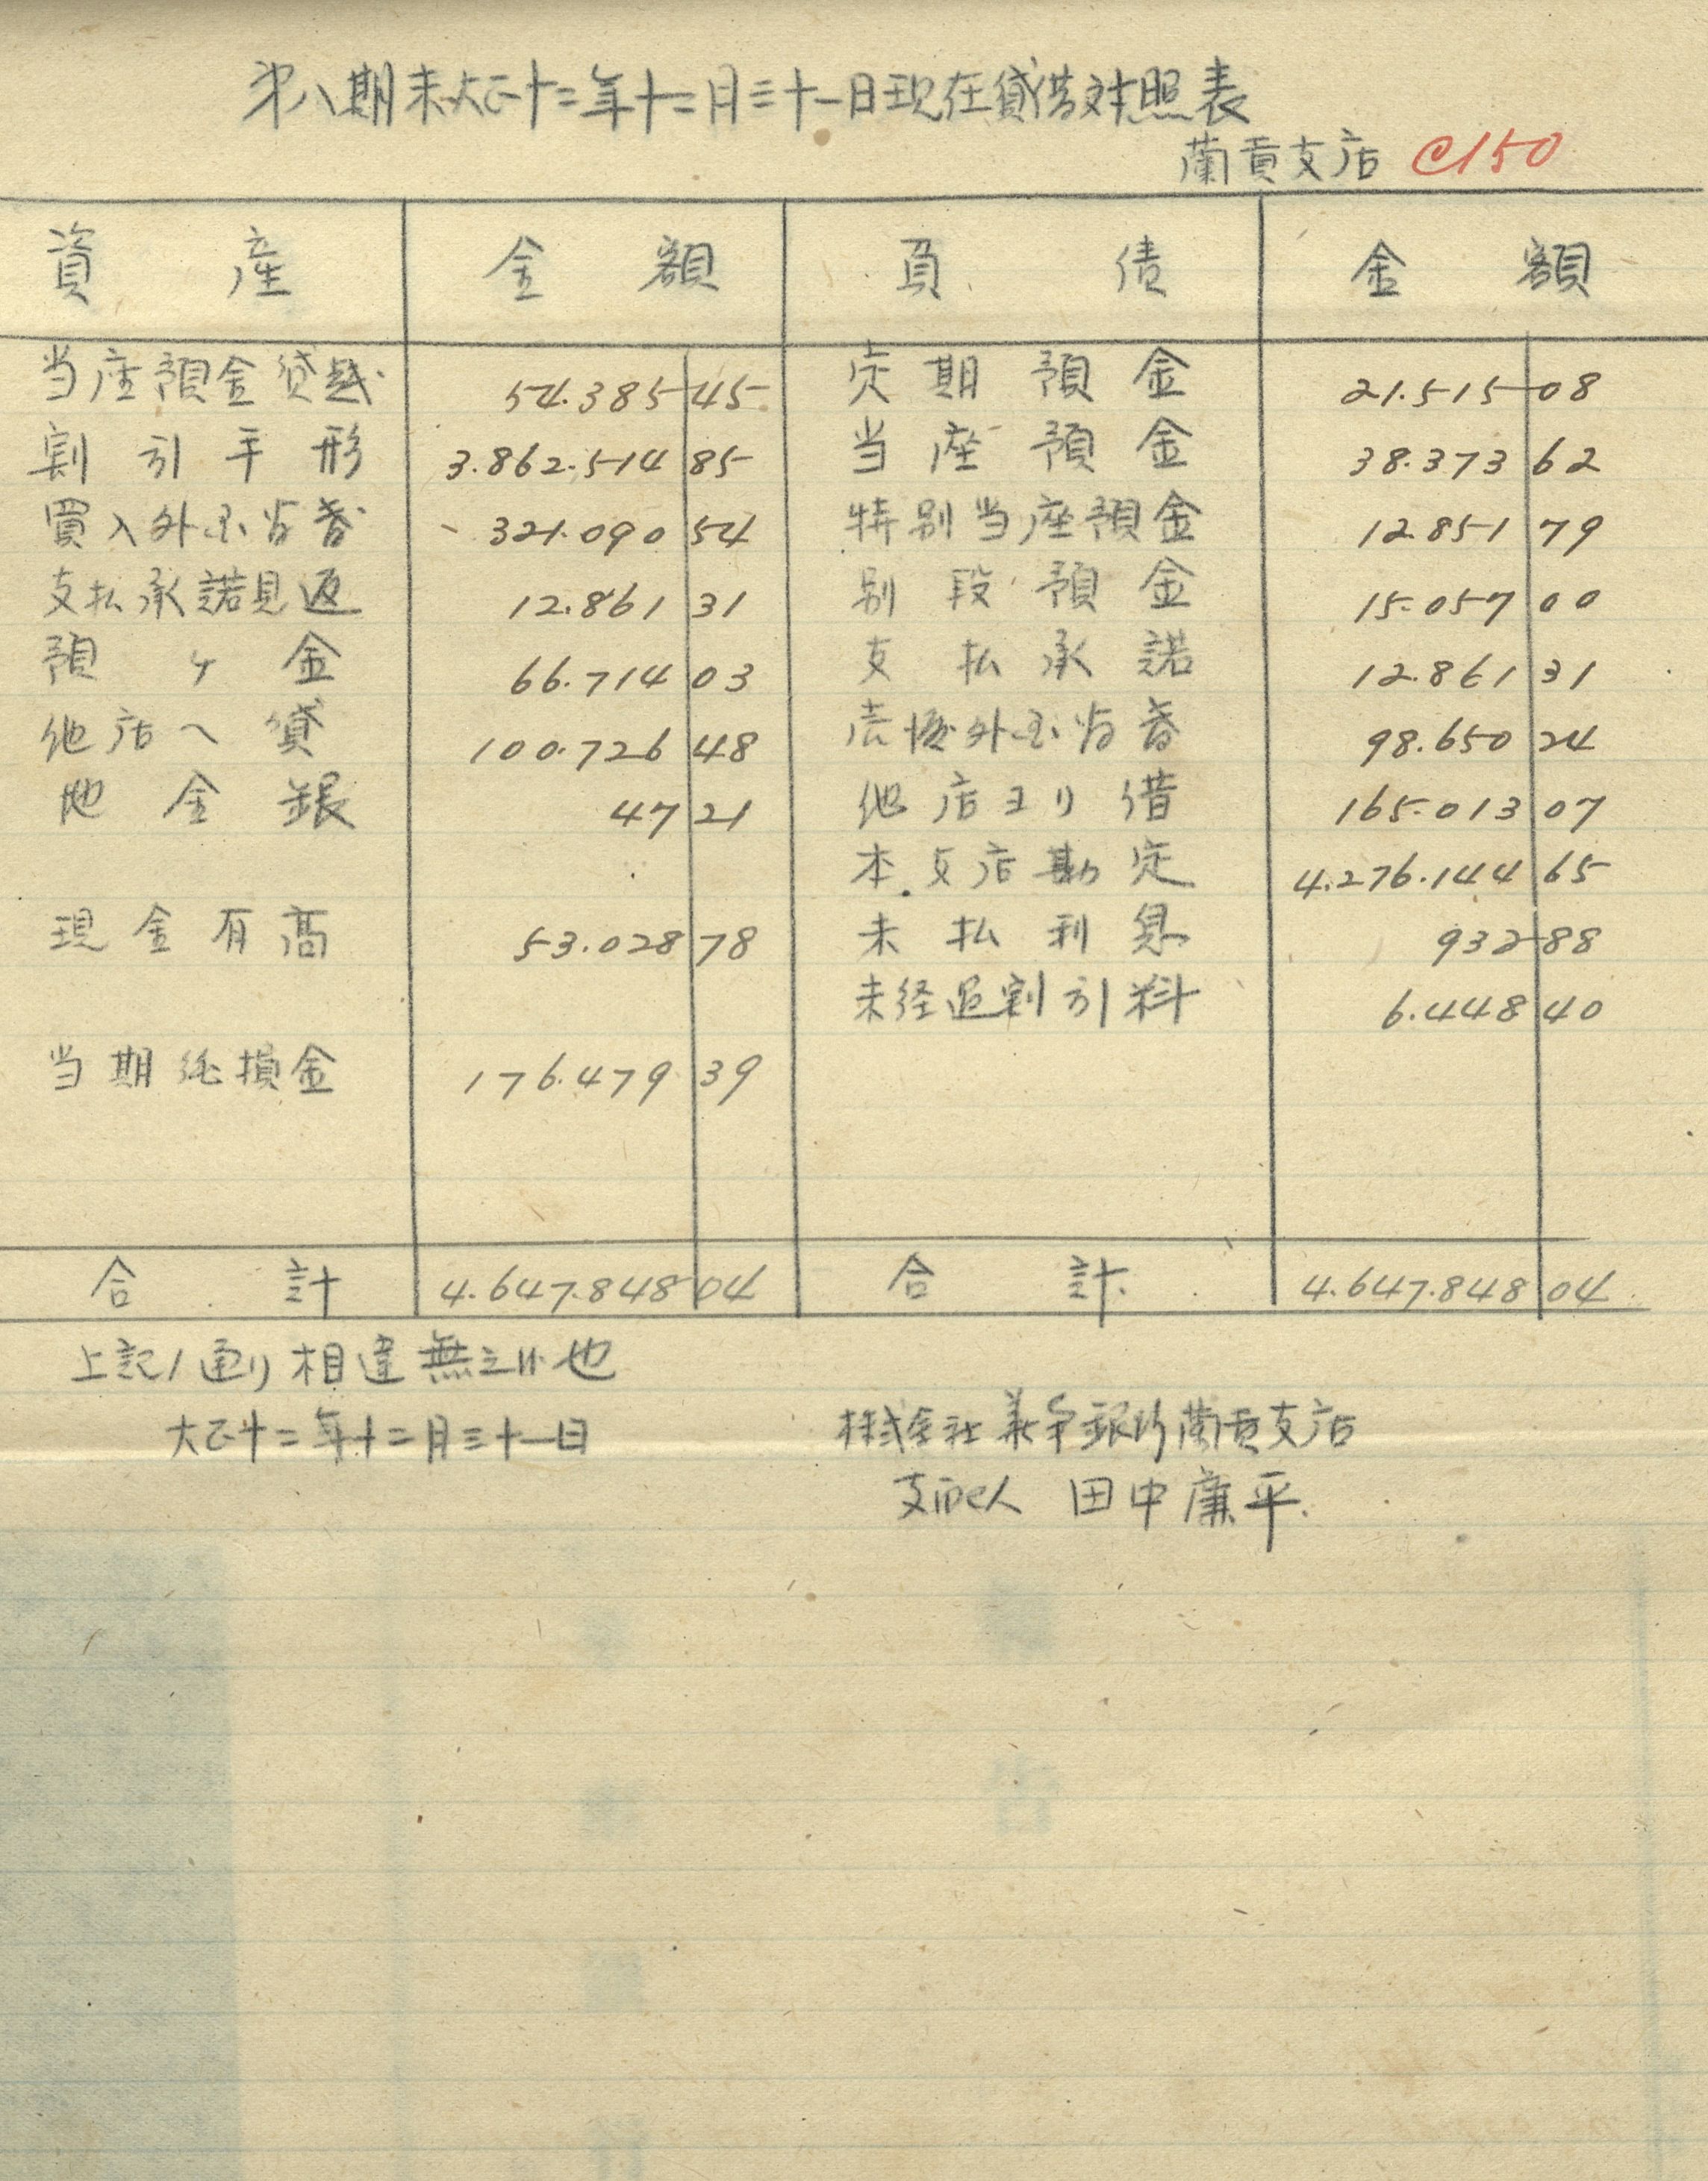 第八期末大正十二年十二月三十一日現在貸借対照表
蘭貢支店 @150
資産 金額 負債 金額
当座預金貸越 54.385 45 定期預金 21.515 08
割引手形 3.862.514 85 当座預金 38.373 62
買入外国為替 321.090 54 特別当座預金 12.851 79
支払承諾見返 12.861 31 別段預金 15.057 00
預ケ金 66.714 03 支払承諾 12.861 31
他店へ貸 100.726 48 売渡外国為替 98.650 24
地金銀 47 21 他店ヨリ借 165.013 07
本支店勘定 4.276.144 65
現金有高 53.028 78 未払利息 932 88
未経過割引料 6.448 40
当期純損金 176.479 39
合計 4.647.848 04 合計 4.647.848 04
上記ノ通り相違無之候也
大正十二年十二月三十一日
株式会社華南銀行蘭貢支店
支配人 田中廉平